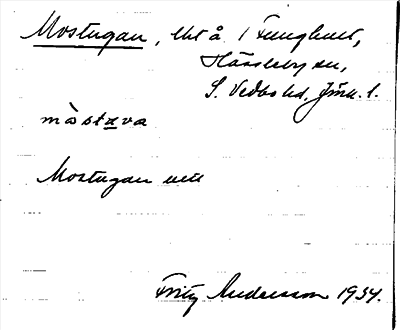 Mostugan, lht å 1 Ljunghult,
Hässleby sn,
S. Vedbo hd, Jönk. l.
mòstava
Mostugan
Fritz Andersson 1934.